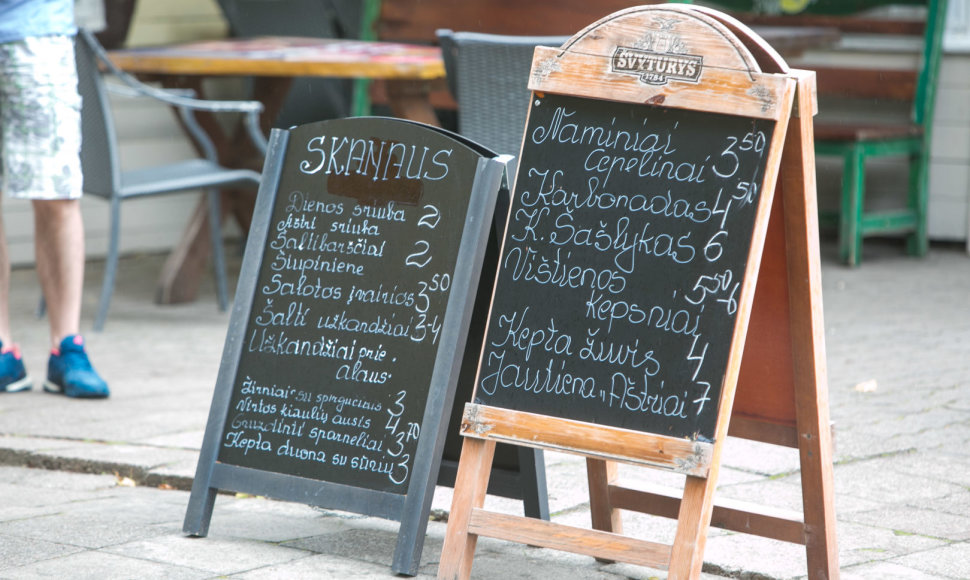 SKANAUS
Dienos sriuba 2
Aštri sriuka
Šaltibarščiai 2
Šiupiniene
Salotos įvairios 3⁵⁰
Šalti užkandžiai 3-4
Užkandžiai prie
alaus.
Žirniai su spirgučiais 3
Virtos kiaulių ausis 4
sparneliai 3⁷⁰
Kepta duona su sūriu 3
ŠVYTURYS
1784
Naminiai
Cepelinai 3⁵⁰
Karbonadas 4⁵⁰
K. Šašlykas 6
Vištienos
kepsniai 5⁵⁰-6
Kepta žuvis 4
Jautiena „Aštriai 7